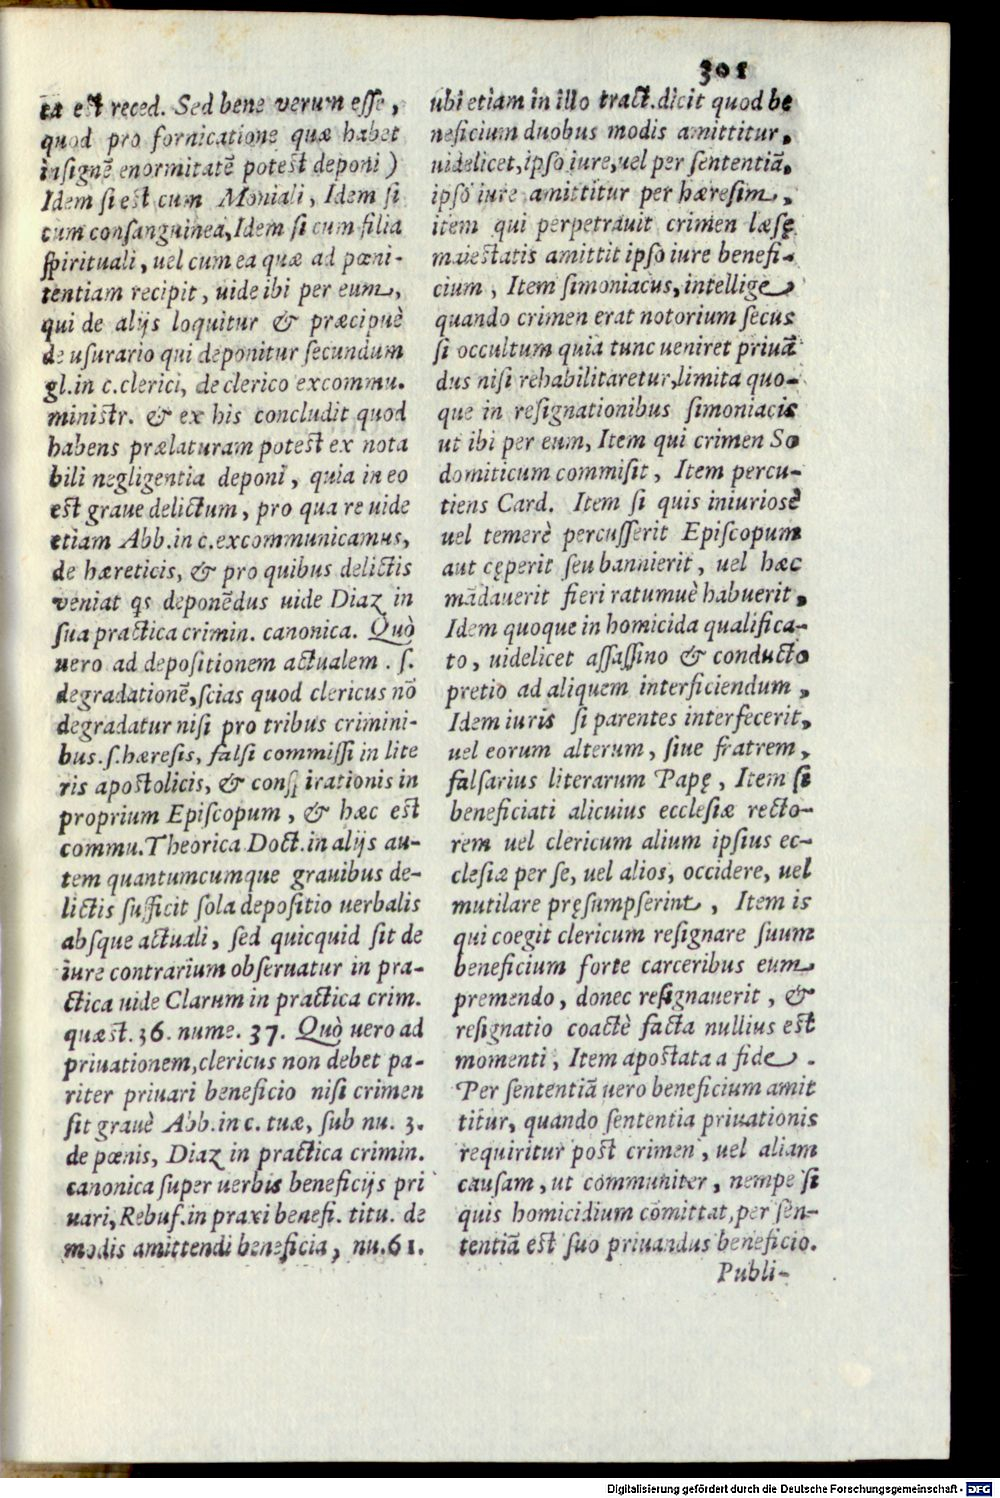 301
ta est reced. Sed bene verum esse,
quod pro fornicatione quæ habet
insignē enormitatē potest deponi)
Idem si est cum Moniali, Idem si
cum consanguinea, Idem si cum filia
spirituali, uel cum ea quæ ad pœni-
tentiam recipit, uide ibi per eum,
qui de alijs loquitur & præcipuè
de usurario qui deponitur secundum
gl. in c. clerici, de clerico excommu.
ministr. & ex his concludit quod
habens prælaturam potest ex nota
bili negligentia deponi, quia in eo
est graue delictum, pro qua re uide
etiam Abb. in c. excommunicamus,
de hæreticis, & pro quibus delictis
veniat qs deponēdus uide Diaz in
sua practica crimin. canonica. Quò
uero ad depositionem actualem. s.
degradationē, scias quod clericus nō
degradatur nisi pro tribus crimini-
bus. s. hæresis, falsi commissi in lite
ris apostolicis, & conspirationis in
proprium Episcopum, & hæc est
commu. Theorica Doct. in alijs au-
tem quantumcumque grauibus de-
lictis sufficit sola depositio uerbalis
absque actuali, sed quicquid sit de
iure contrarium obseruatur in pra-
ctica uide Clarum in practica crim.
quæst. 36. nume. 37. Quò uero ad
priuationem, clericus non debet pa-
riter priuari beneficio nisi crimen
sit grauè Abb. in c. tuæ, sub nu. 3.
de pœnis, Diaz in practica crimin.
canonica super uerbis beneficijs pri
uari, Rebuf. in praxi benefi. titu. de
modis amittendi beneficia, nu. 61.
ubi etiam in illo tract. dicit quod be
neficium duobus modis amittitur,
uidelicet, ipso iure, uel per sententiā,
ipso iure amittitur per hæresim,
item qui perpetrauit crimen læsę
maiestatis amittit ipso iure benefi-
cium, Item simoniacus, intellige
quando crimen erat notorium secus
si occultum quia tunc ueniret priuā
dus nisi rehabilitaretur, limita quo-
que in resignationibus simoniacis
ut ibi per eum, Item qui crimen So
domiticum commisit, Item percu-
tiens Card. Item si quis iniuriosè
uel temerè percusserit Episcopum
aut cęperit seu bannierit, uel hæc
mādauerit fieri ratumuè habuerit,
Idem quoque in homicida qualifica-
to, uidelicet assassino & conducto
pretio ad aliquem interficiendum,
Idem iuris si parentes interfecerit,
uel eorum alterum, siue fratrem,
falsarius literarum Papę, Item si
beneficiati alicuius ecclesiæ recto-
rem uel clericum alium ipsius ec-
clesiæ per se, uel alios, occidere, uel
mutilare pręsumpserint, Item is
qui coegit clericum resignare suum
beneficium forte carceribus eum
premendo, donec resignauerit, &
resignatio coactè facta nullius est
momenti, Item apostata a fide.
Per sententiā uero beneficium amit
titur, quando sententia priuationis
requiritur post crimen, uel aliam
causam, ut communiter, nempe si
quis homicidium cōmittat, per sen-
tentiā est suo priuandus beneficio.
Publi-
Digitalisierung gefördert durch die Deutsche Forschungsgemeinschaft - DFG